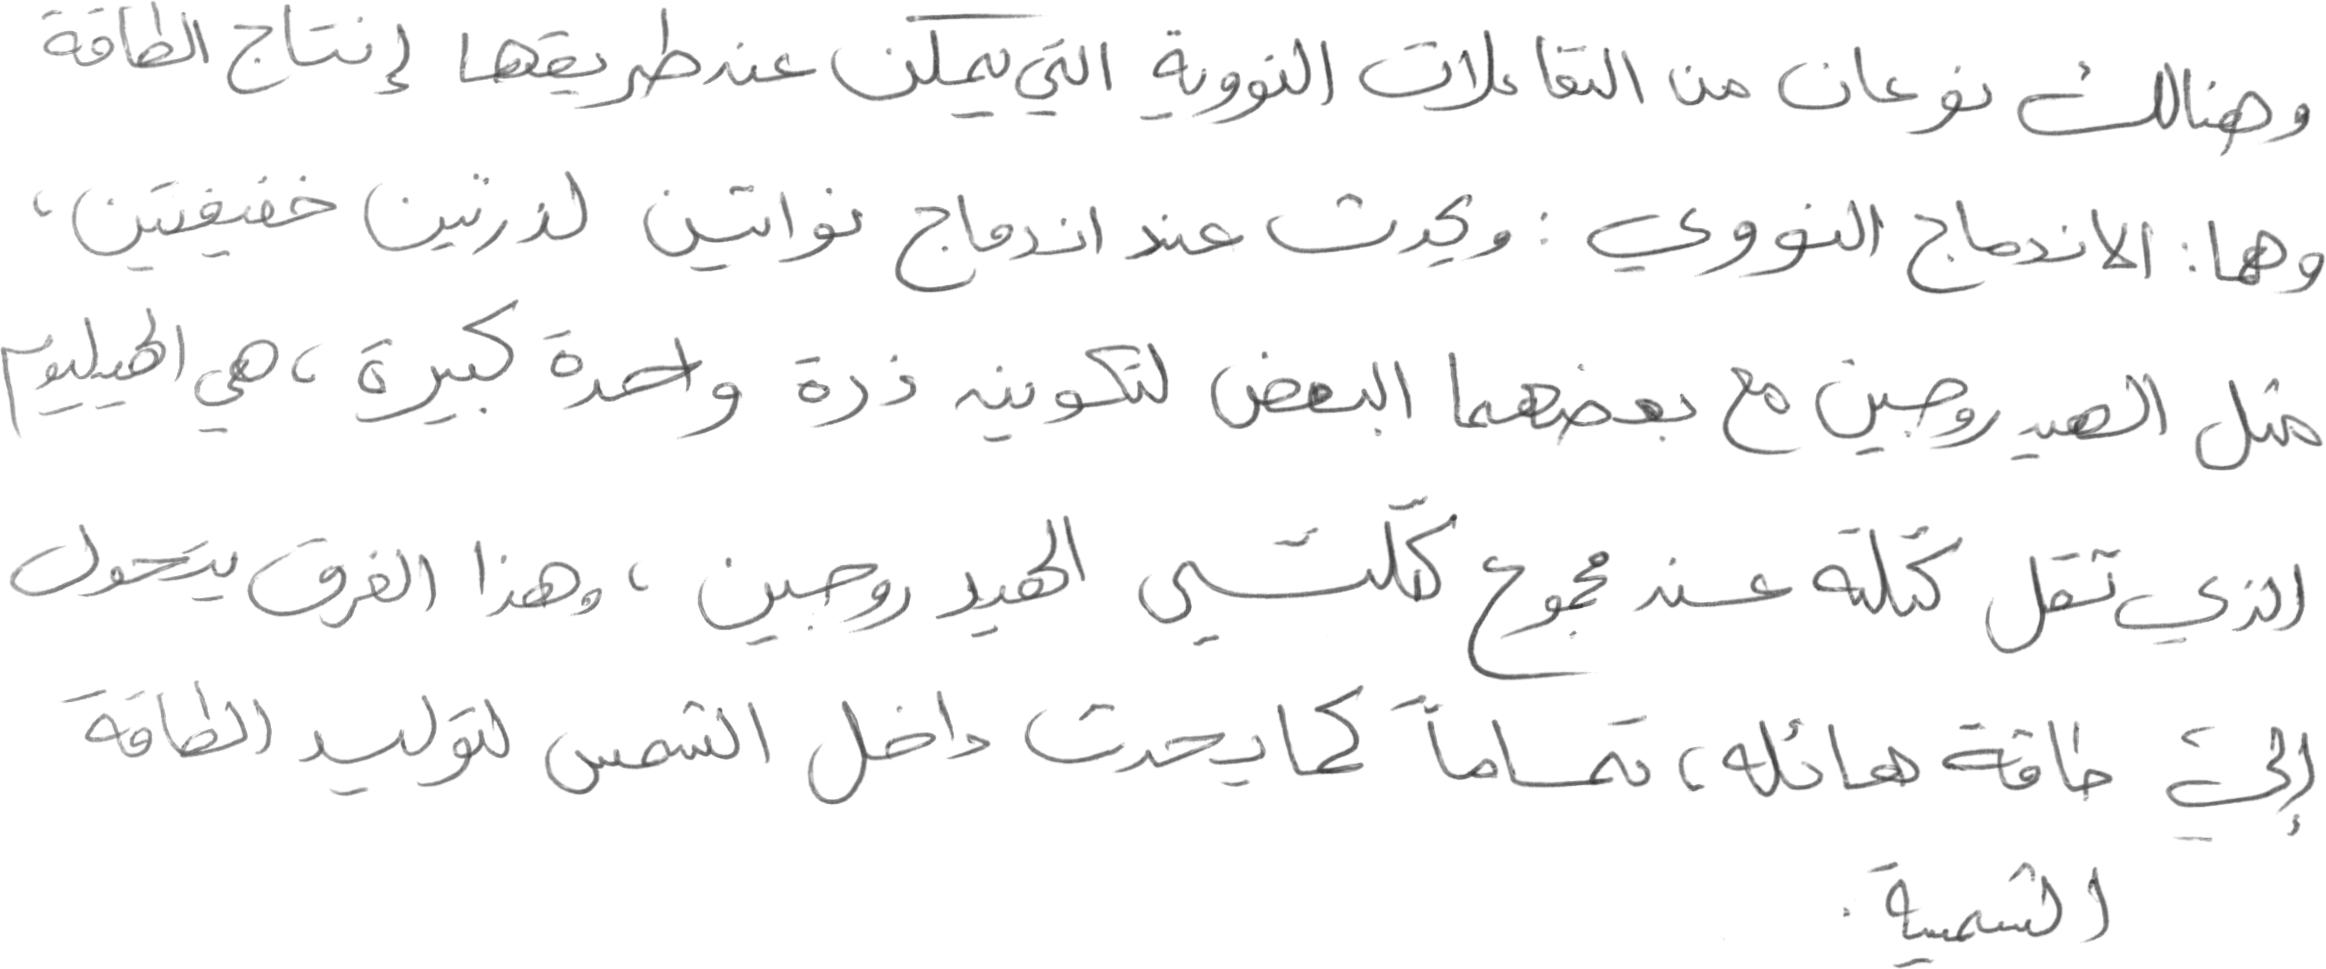 وهنالك نوعان من التفاعلات النووية التي يمكن عند طريقها إنتاج الطاقة
وهما: الاندماج النووي: ويحدث عند اندماج نواتين لذرتين خفيفتين،
مثل الهيدروجين مع بعضهما البعض لتكوينه ذرة واحدة كبيرة، هي الهيليوم
الذي تقل كتلته عند مجموع كتلتي الهيدروجين، وهذا الفرق يتحول
إلى طاقة هائله، تماماً كما يحدث داخل الشمس لتوليد الطاقة
الشمسية.